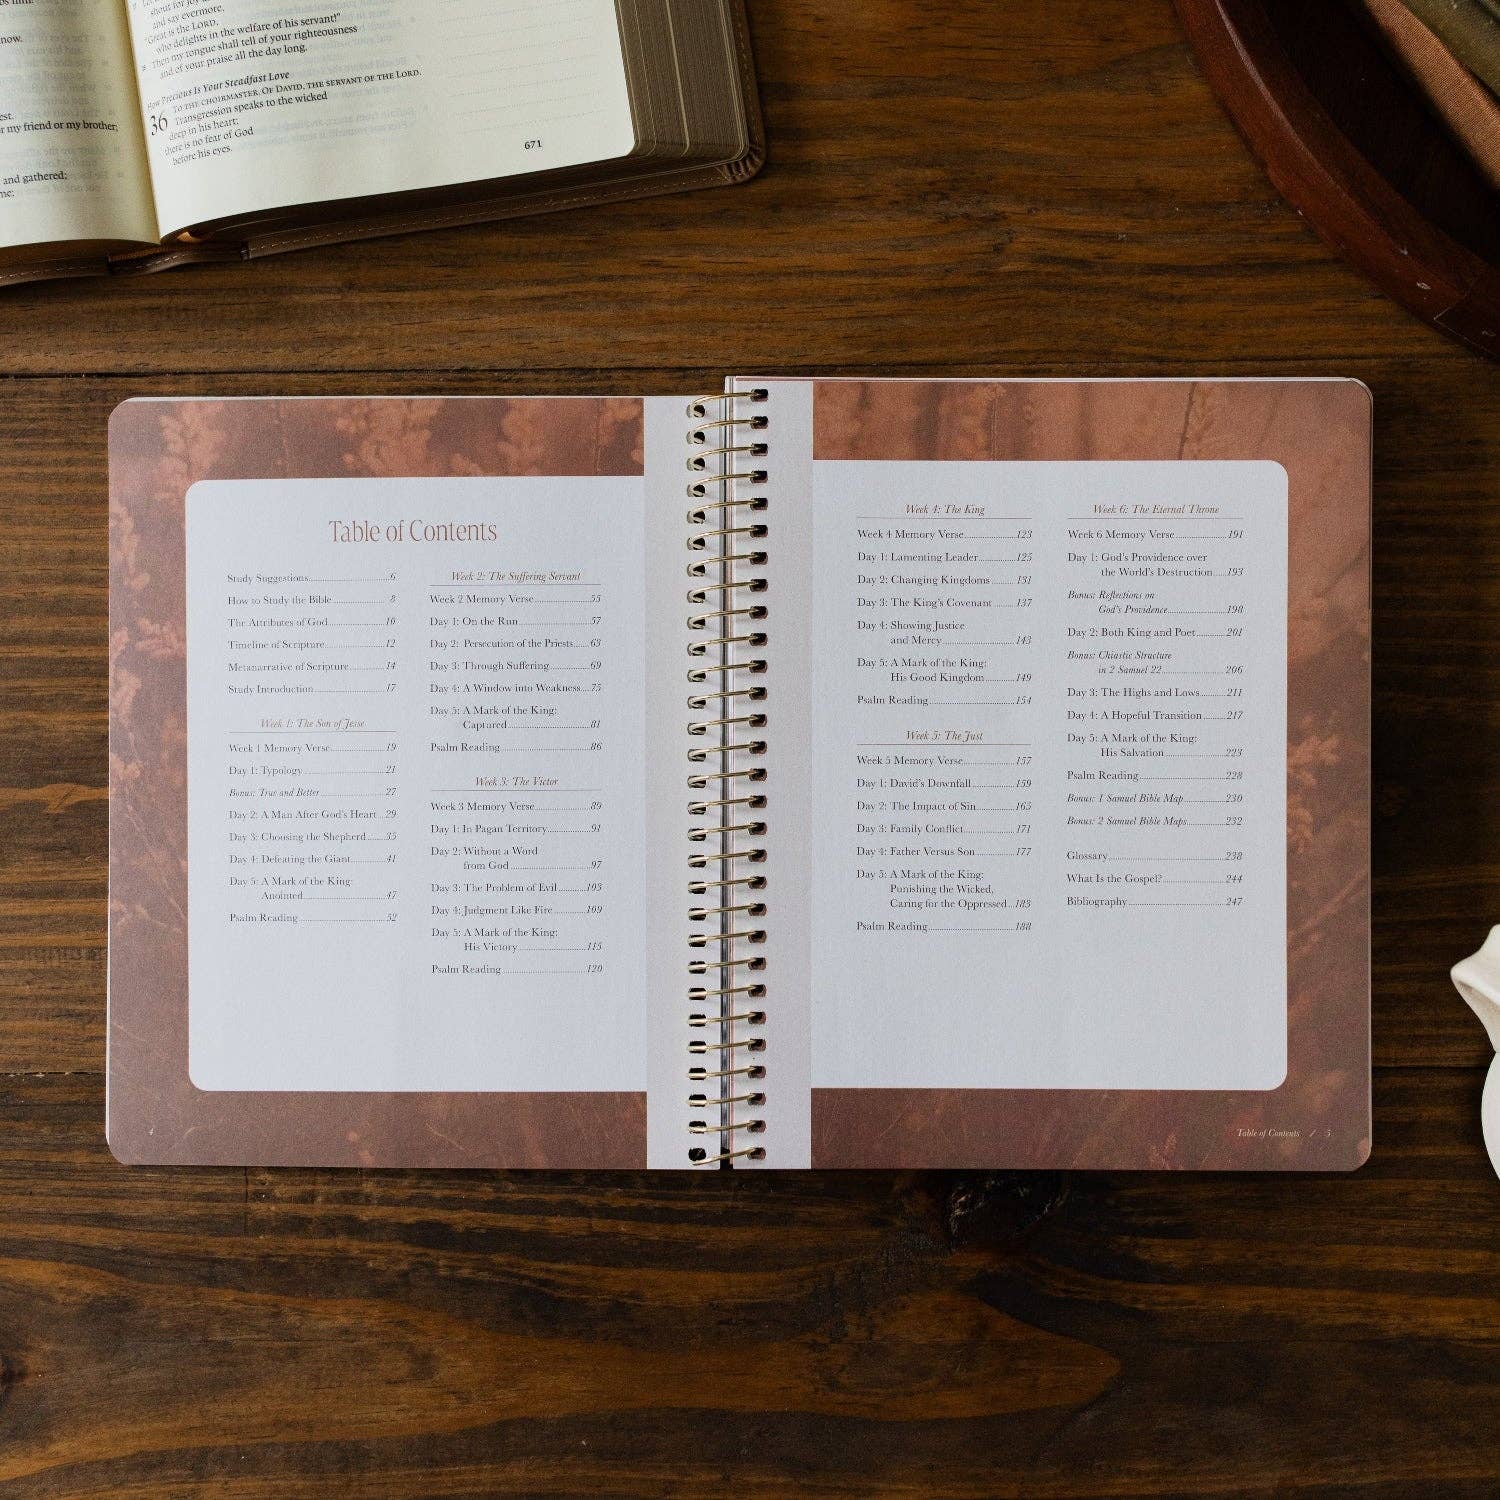 now.
est.
r my friend or my brother;
and gathered;
me;
shout for joy
and say evermore,
"Great is the LORD,
who delights in the welfare of his servant!"
Then my tongue shall tell of your righteousness
and of your praise all the day long.
How Precious Is Your Steadfast Love
TO THE CHOIRMASTER. OF DAVID, THE SERVANT OF THE LORD.
36 Transgression speaks to the wicked
deep in his heart;
there is no fear of God
before his eyes.
671
Table of Contents
Study Suggestions 6
How to Study the Bible 8
The Attributes of God 10
Timeline of Scripture 12
Metanarrative of Scripture 14
Study Introduction 17
Week 1: The Son of Jesse
Week 1 Memory Verse 19
Day 1: Typology 21
Bonus: True and Better 27
Day 2: A Man After God's Heart 29
Day 3: Choosing the Shepherd 35
Day 4: Defeating the Giant 41
Day 5: A Mark of the King:
Anointed 47
Psalm Reading 52
Week 2: The Suffering Servant
Week 2 Memory Verse 55
Day 1: On the Run 57
Day 2: Persecution of the Priests 63
Day 3: Through Suffering 69
Day 4: A Window into Weakness 75
Day 5: A Mark of the King:
Captured 81
Psalm Reading 86
Week 3: The Victor
Week 3 Memory Verse 89
Day 1: In Pagan Territory 91
Day 2: Without a Word
from God 97
Day 3: The Problem of Evil 103
Day 4: Judgment Like Fire 109
Day 5: A Mark of the King:
His Victory 115
Psalm Reading 120
Week 4: The King
Week 4 Memory Verse 123
Day 1: Lamenting Leader 125
Day 2: Changing Kingdoms 131
Day 3: The King's Covenant 137
Day 4: Showing Justice
and Mercy 143
Day 5: A Mark of the King:
His Good Kingdom 149
Psalm Reading 154
Week 5: The Just
Week 5 Memory Verse 157
Day 1: David's Downfall 159
Day 2: The Impact of Sin 165
Day 3: Family Conflict 171
Day 4: Father Versus Son 177
Day 5: A Mark of the King:
Punishing the Wicked,
Caring for the Oppressed 183
Psalm Reading 188
Week 6: The Eternal Throne
Week 6 Memory Verse 191
Day 1: God's Providence over
the World's Destruction 193
Bonus: Reflections on
God's Providence 198
Day 2: Both King and Poet 201
Bonus: Chiastic Structure
in 2 Samuel 22 206
Day 3: The Highs and Lows 211
Day 4: A Hopeful Transition 217
Day 5: A Mark of the King:
His Salvation 223
Psalm Reading 228
Bonus: 1 Samuel Bible Map 230
Bonus: 2 Samuel Bible Maps 232
Glossary 238
What Is the Gospel? 244
Bibliography 247
Table of Contents / 5